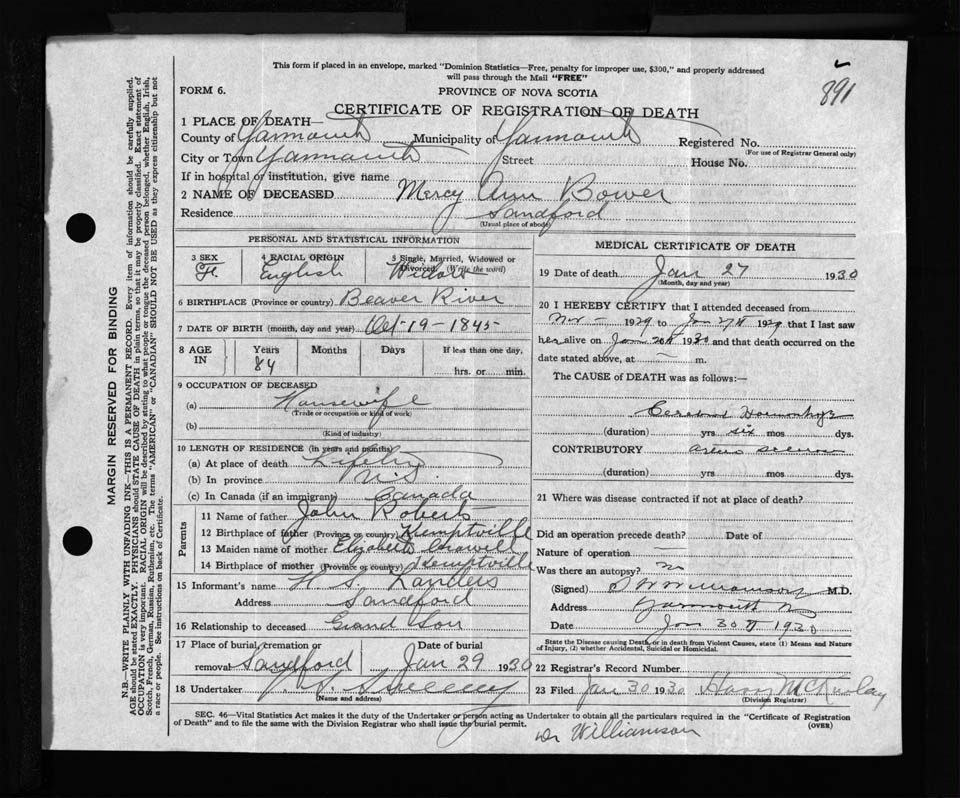 This form if placed in an envelope, marked "Dominion Statistics—Free, penalty for improper use, $300," and properly addressed
will pass through the Mail "FREE"
891
FORM 6.
PROVINCE OF NOVA SCOTIA
CERTIFICATE OF REGISTRATION OF DEATH
1 PLACE OF DEATH—
County of Yarmouth Municipality of Yarmouth Registered No.
(For use of Registrar General only)
City or Town Yarmouth Street House No.
If in hospital or institution, give name
2 NAME OF DECEASED Mercy Ann Bower
Residence Sandford
(Usual place of abode)
PERSONAL AND STATISTICAL INFORMATION
3 SEX 4 RACIAL ORIGIN 5 Single, Married, Widowed or Divorced (Write the word)
F. English Widow
6 BIRTHPLACE (Province or country) Beaver River
7 DATE OF BIRTH (month, day and year) Oct-19-1845
8 AGE IN Years Months Days If less than one day,
84 hrs. or min.
9 OCCUPATION OF DECEASED
(a) Housewife
(Trade or occupation or kind of work)
(b)
(Kind of industry)
10 LENGTH OF RESIDENCE (in years and months)
(a) At place of death
(b) In province N.S.
(c) In Canada (if an immigrant) Canada
Parents
11 Name of father John Roberts
12 Birthplace of father (Province or country) Kemptville
13 Maiden name of mother Elizabeth
14 Birthplace of mother (Province or country) Kemptville
15 Informant's name H. S. Landers
Address Sandford
16 Relationship to deceased Grand Son
17 Place of burial, cremation or removal Sandford Date of burial Jan 29 1930
18 Undertaker Sweeney
(Name and address)
MEDICAL CERTIFICATE OF DEATH
19 Date of death Jan 27 1930
(Month, day and year)
20 I HEREBY CERTIFY that I attended deceased from
Nov — 1929 to Jan 27th 1929 that I last saw
her alive on Jan 26th 1930 and that death occurred on the
date stated above, at — m.
The CAUSE of DEATH was as follows:—
Cerebral
(duration) yrs six mos dys.
CONTRIBUTORY
(duration) yrs. mos. dys.
21 Where was disease contracted if not at place of death?
Did an operation precede death? — Date of
Nature of operation —
Was there an autopsy? no
(Signed) Williamson M.D.
Address Yarmouth N
Date Jan 30th 1930
State the Disease causing Death, or in death from Violent Causes, state (1) Means and Nature of Injury, (2) whether Accidental, Suicidal or Homicidal.
22 Registrar's Record Number
23 Filed Jan 30 1930 Harry
(Division Registrar)
SEC. 46—Vital Statistics Act makes it the duty of the Undertaker or person acting as Undertaker to obtain all the particulars required in the "Certificate of Registration
of Death" and to file the same with the Division Registrar who shall issue the burial permit.
(OVER)
Dr Williamson
MARGIN RESERVED FOR BINDING
N.B.—WRITE PLAINLY WITH UNFADING INK—THIS IS A PERMANENT RECORD. Every item of information should be carefully supplied.
AGE should be stated EXACTLY. PHYSICIANS should STATE CAUSE OF DEATH in plain terms, so that it may be properly classified. Exact statement of
OCCUPATION is very important. RACIAL ORIGIN will be described by stating to what people or tongue the deceased person belonged, whether English, Irish,
Scotch, French, German, Russian, Ruthenian, etc. The terms "AMERICAN" or "CANADIAN" SHOULD NOT BE USED as they express citizenship but not
a race or people. See instructions on back of Certificate.